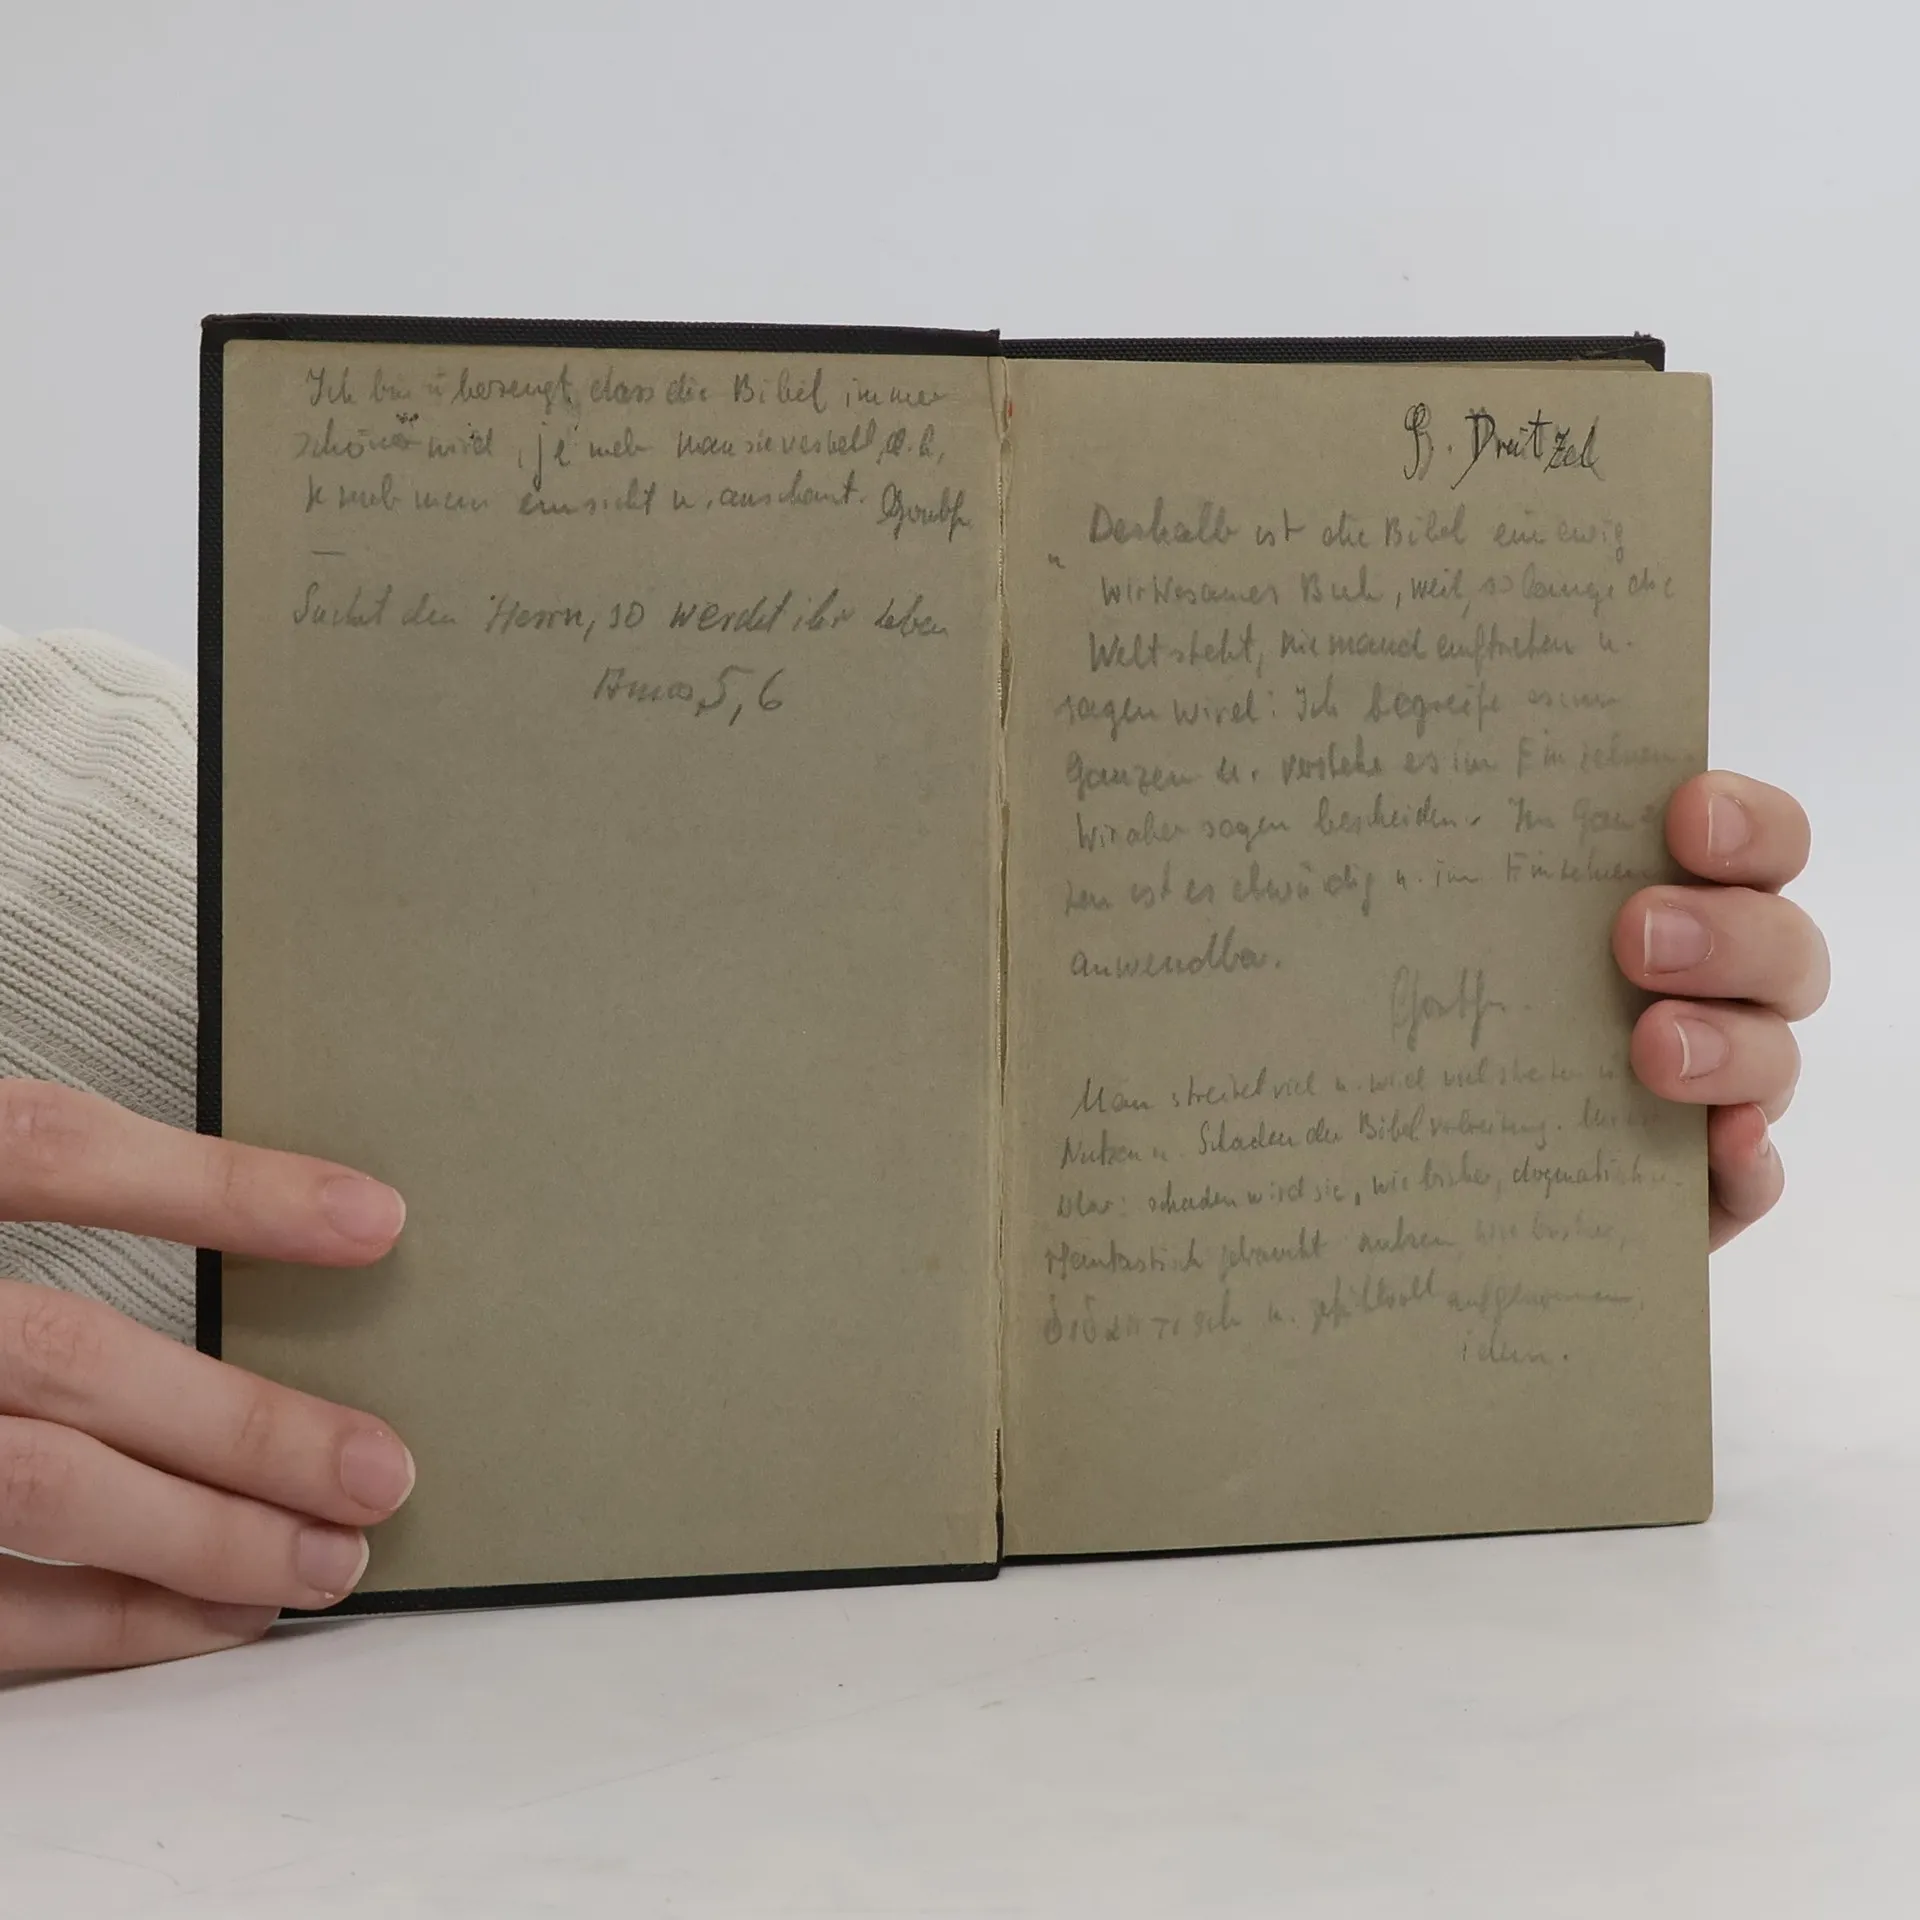 Ich bin überzeugt, dass die Bibel immer
schöner wird, je mehr man sie versteht, d.h.
je mehr man einsieht u. anschaut. Goethe
—
Suchet den Herrn, so werdet ihr leben
Amos 5, 6
Dreitzel
„Deshalb ist die Bibel ein ewig
wirksames Buch, weil, so lange die
Welt steht, niemand auftreten u.
sagen wird: Ich begreife es im
Ganzen u. verstehe es im Einzelnen.
Wir aber sagen bescheiden: Im Gan-
zen ist es ehrwürdig u. im Einzelnen
anwendbar.
Goethe.
Man streitet viel u. wird viel streiten ü
Nutzen u. Schaden der Bibelverbreitung. Mir ist
klar: schaden wird sie, wie bisher, dogmatisch u.
phantastisch gebraucht nutzen, wie bisher,
didaktisch u. gefühlvoll aufgenommen.
idem.